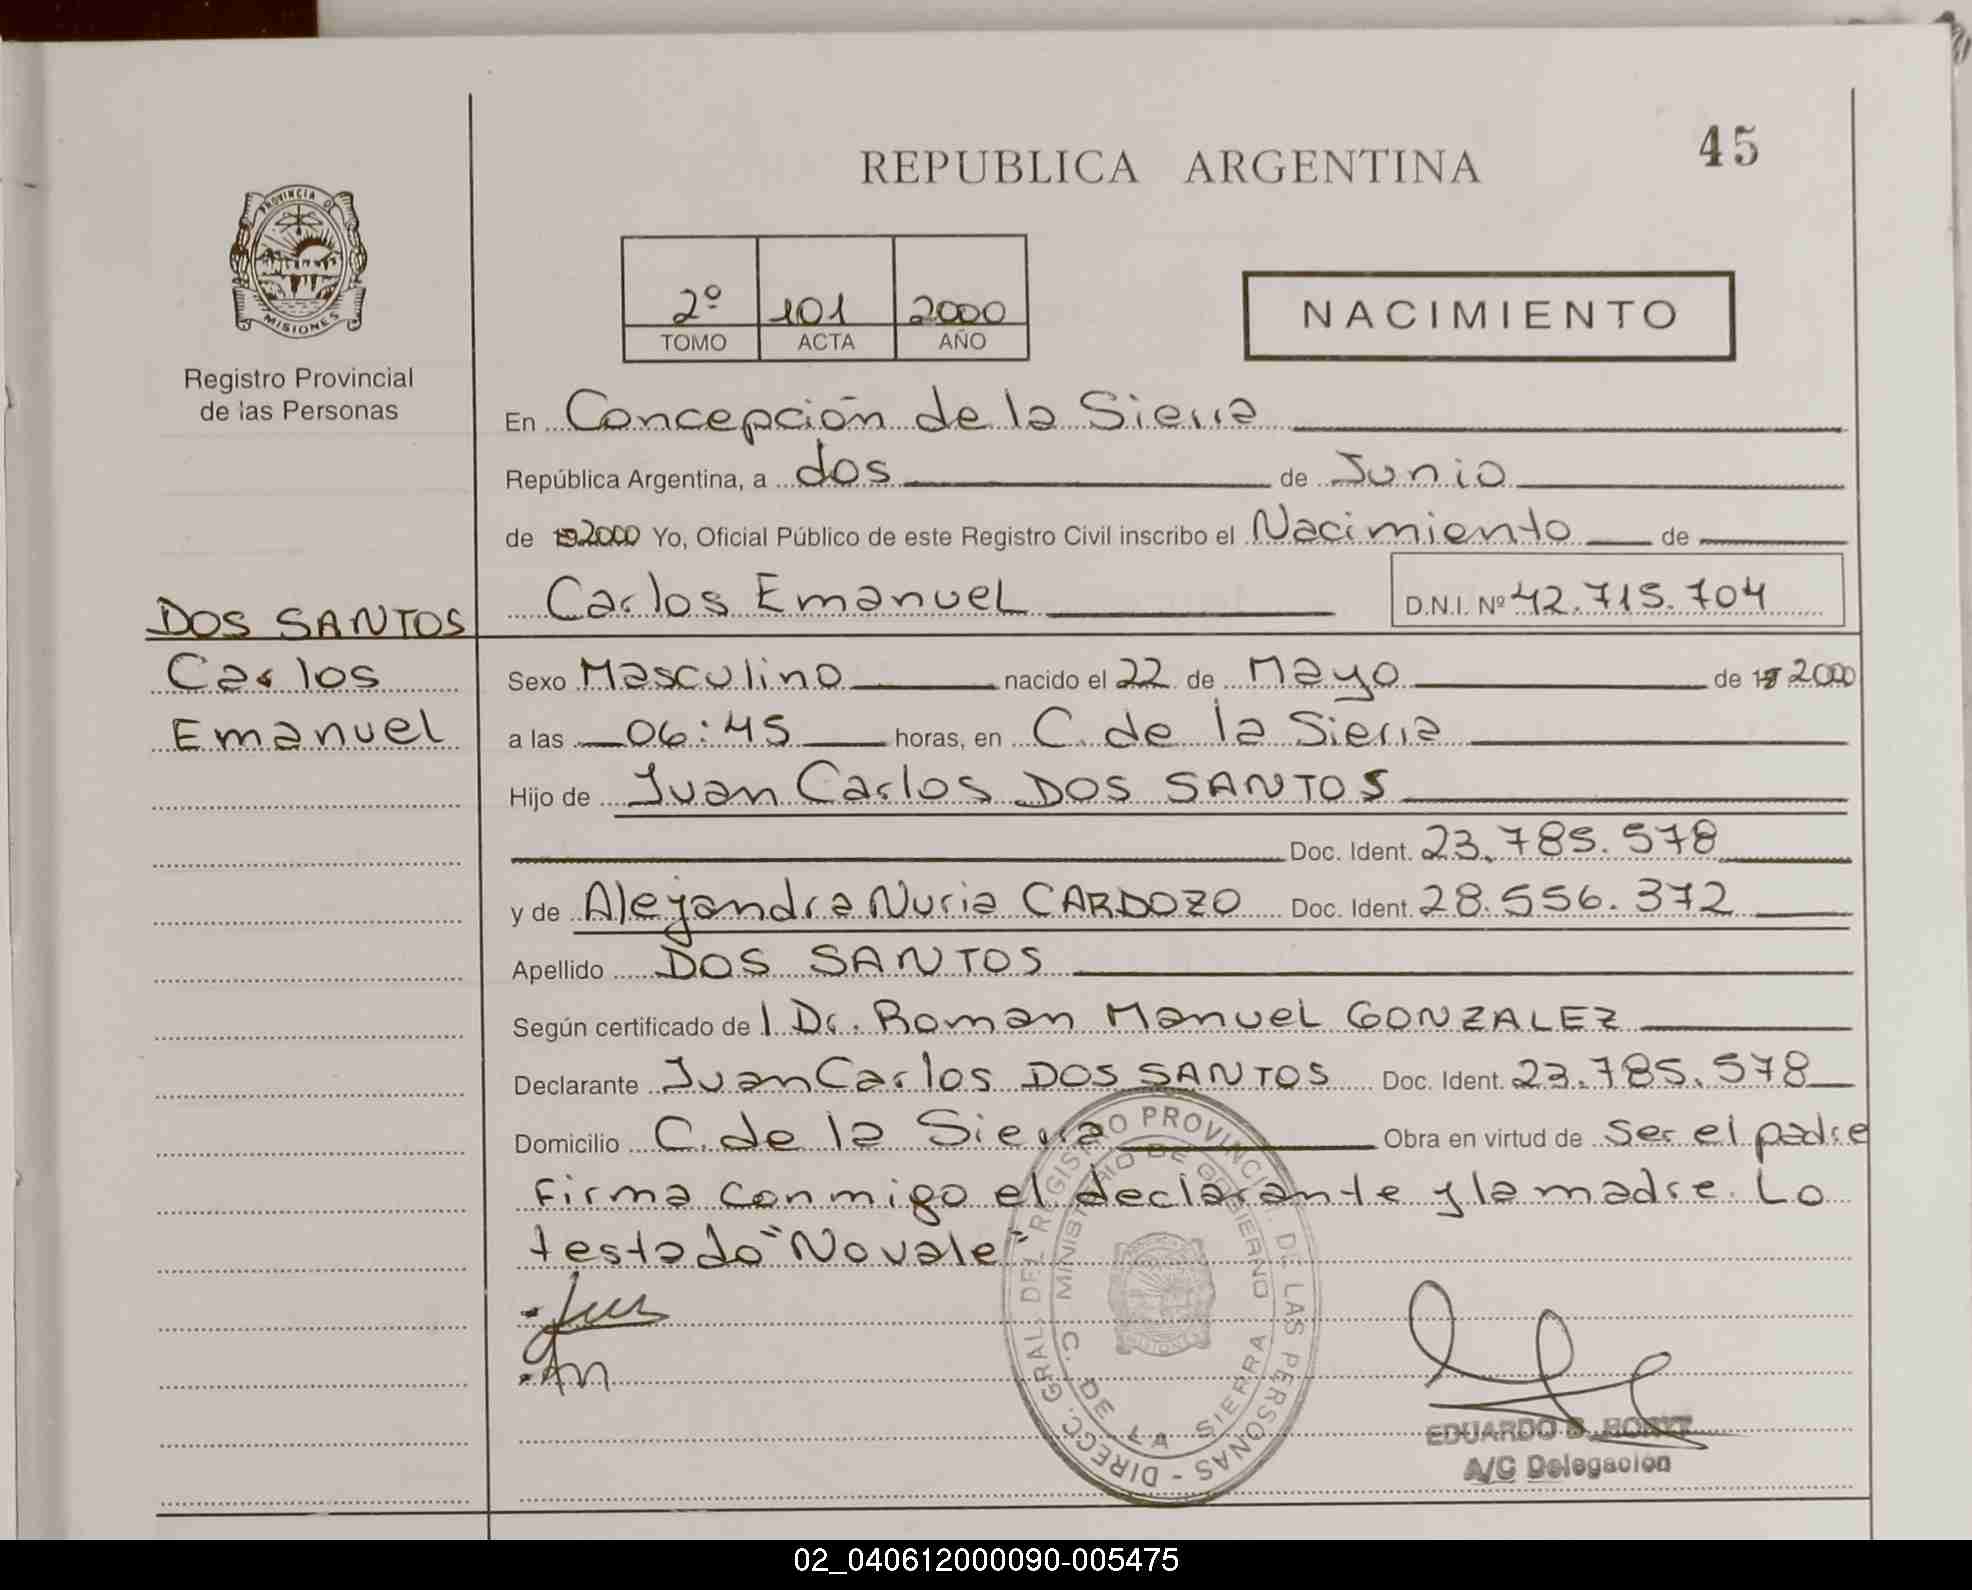 45
REPUBLICA ARGENTINA
PROVINCIA DE
MISIONES
Registro Provincial
de las Personas
2º 101 2000
TOMO ACTA AÑO
NACIMIENTO
En Concepción de la Sierra
República Argentina, a dos de Junio
de 2000 Yo, Oficial Público de este Registro Civil inscribo el Nacimiento de
Carlos Emanuel D.N.I. Nº 42.715.704
DOS SANTOS
Carlos
Emanuel
Sexo Masculino nacido el 22 de Mayo de 2000
a las 06:45 horas, en C. de la Sierra
Hijo de Juan Carlos DOS SANTOS
Doc. Ident. 23.785.578
y de Alejandra Nuria CARDOZO Doc. Ident. 28.556.372
Apellido DOS SANTOS
Según certificado de l Dr. Roman Manuel GONZALEZ
Declarante Juan Carlos DOS SANTOS Doc. Ident. 23.785.578
Domicilio C. de la Sierra Obra en virtud de Ser el padre
Firma conmigo el declarante y la madre. Lo
testado "No vale"
DIRECC. GRAL. DEL REGISTRO PROVINCIAL DE LAS PERSONAS -
MINISTERIO DE GOBIERNO
C. DE LA SIERRA
EDUARDO
A/C Delegación
02_040612000090-005475